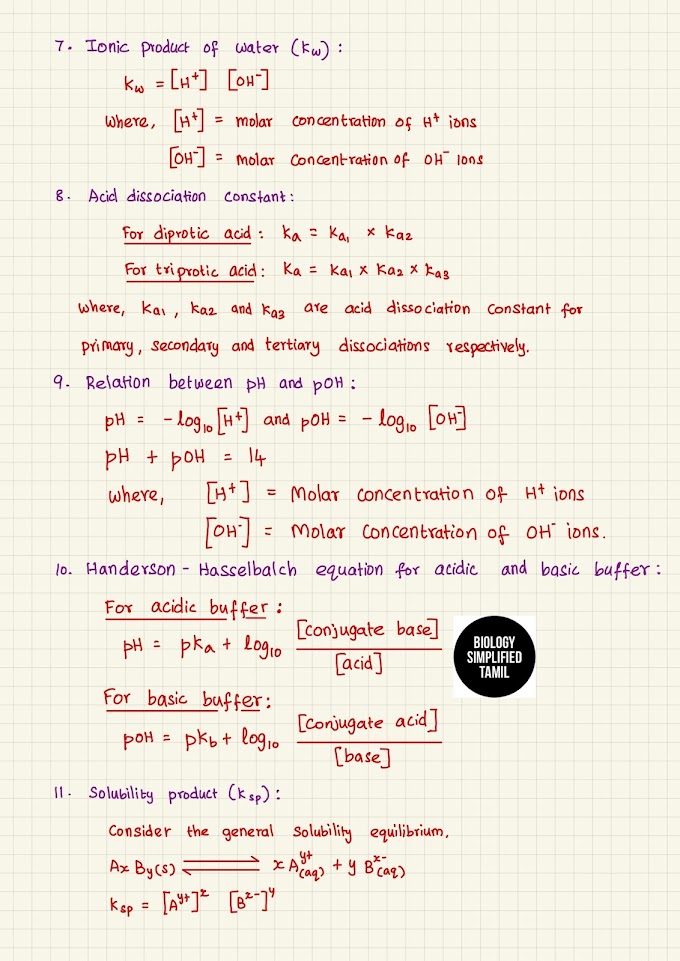 7. Ionic product of water (kw) :
kw = [H⁺] [OH⁻]
where, [H⁺] = molar concentration of H⁺ ions
[OH⁻] = molar concentration of OH⁻ ions
8. Acid dissociation constant :
For diprotic acid : ka = ka₁ × ka₂
For triprotic acid : ka = ka₁ × ka₂ × ka₃
where, ka₁ , ka₂ and ka₃ are acid dissociation constant for
primary, secondary and tertiary dissociations respectively.
9. Relation between pH and pOH :
pH = - log₁₀ [H⁺] and pOH = - log₁₀ [OH⁻]
pH + pOH = 14
where, [H⁺] = Molar concentration of H⁺ ions
[OH⁻] = Molar concentration of OH⁻ ions.
10. Handerson - Hasselbalch equation for acidic and basic buffer :
For acidic buffer :
pH = pka + log₁₀ [conjugate base] / [acid]
BIOLOGY
SIMPLIFIED
TAMIL
For basic buffer :
pOH = pkb + log₁₀ [conjugate acid] / [base]
11. Solubility product (ksp) :
Consider the general solubility equilibrium,
Ax By(s) ⇌ x A^y+(aq) + y B^x-(aq)
ksp = [A^y+]^x [B^x-]^y